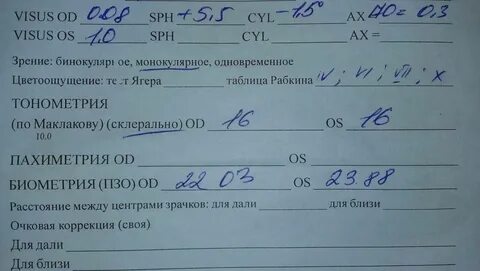 VISUS OD 0.08 SPH +5,5 CYL -1,5 AX 40 = 0,3
VISUS OS 1.0 SPH CYL AX =
Зрение: бинокулярное, монокулярное, одновременное
Цветоощущение: тест Ягера таблица Рабкина IV; VI; VII; X
ТОНОМЕТРИЯ
(по Маклакову) (склерально) OD 16 OS 16
10.0
ПАХИМЕТРИЯ OD OS
БИОМЕТРИЯ (ПЗО) OD 22 03 OS 23.88
Расстояние между центрами зрачков: для дали для близи
Очковая коррекция (своя)
Для дали
Для близи